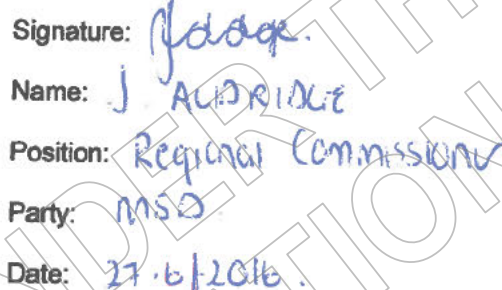 Signature:
Name: J ALDRIDGE
Position: Regional Commissioner
Party: MSD
Date: 27.6.2016.